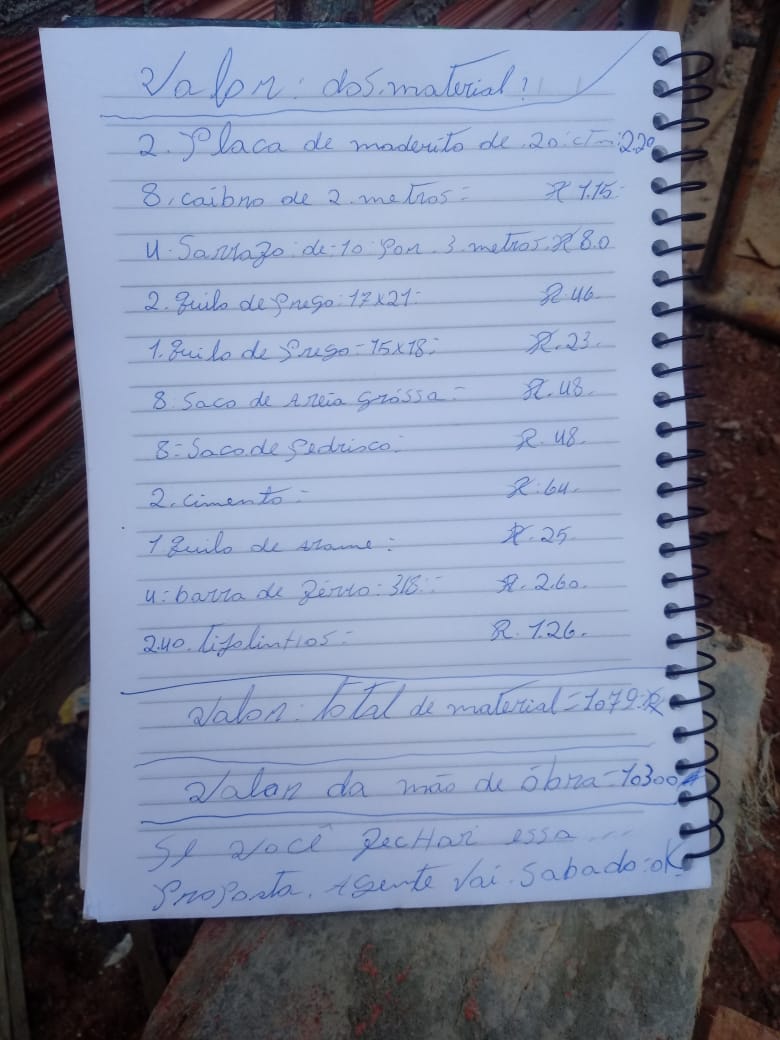 Valor: dos material!
2. Placa de maderito de 20 ctm: 2.20
8. caibro de 2. metros = R 1.15
4: Sarrafo: de 10 Por. 3 metros. R 8.0
2. quilo de Prego: 17x21: R. 46
1. quilo de Prego = 15x18: R. 23.
8 Saco de areia gróssa = R. 48.
8 = Saco de Pedrisco: R. 48.
2. cimento = R. 64.
1 quilo de arame = R. 25.
4: barra de férro: 318: R. 2.60.
2.40. tijolinhos = R. 1.26.
Valor: total de material = 1079 R
Valor da mão de óbra = 10300
Se você fecHar essa...
Proposta. Agente vai. Sabado: ok.